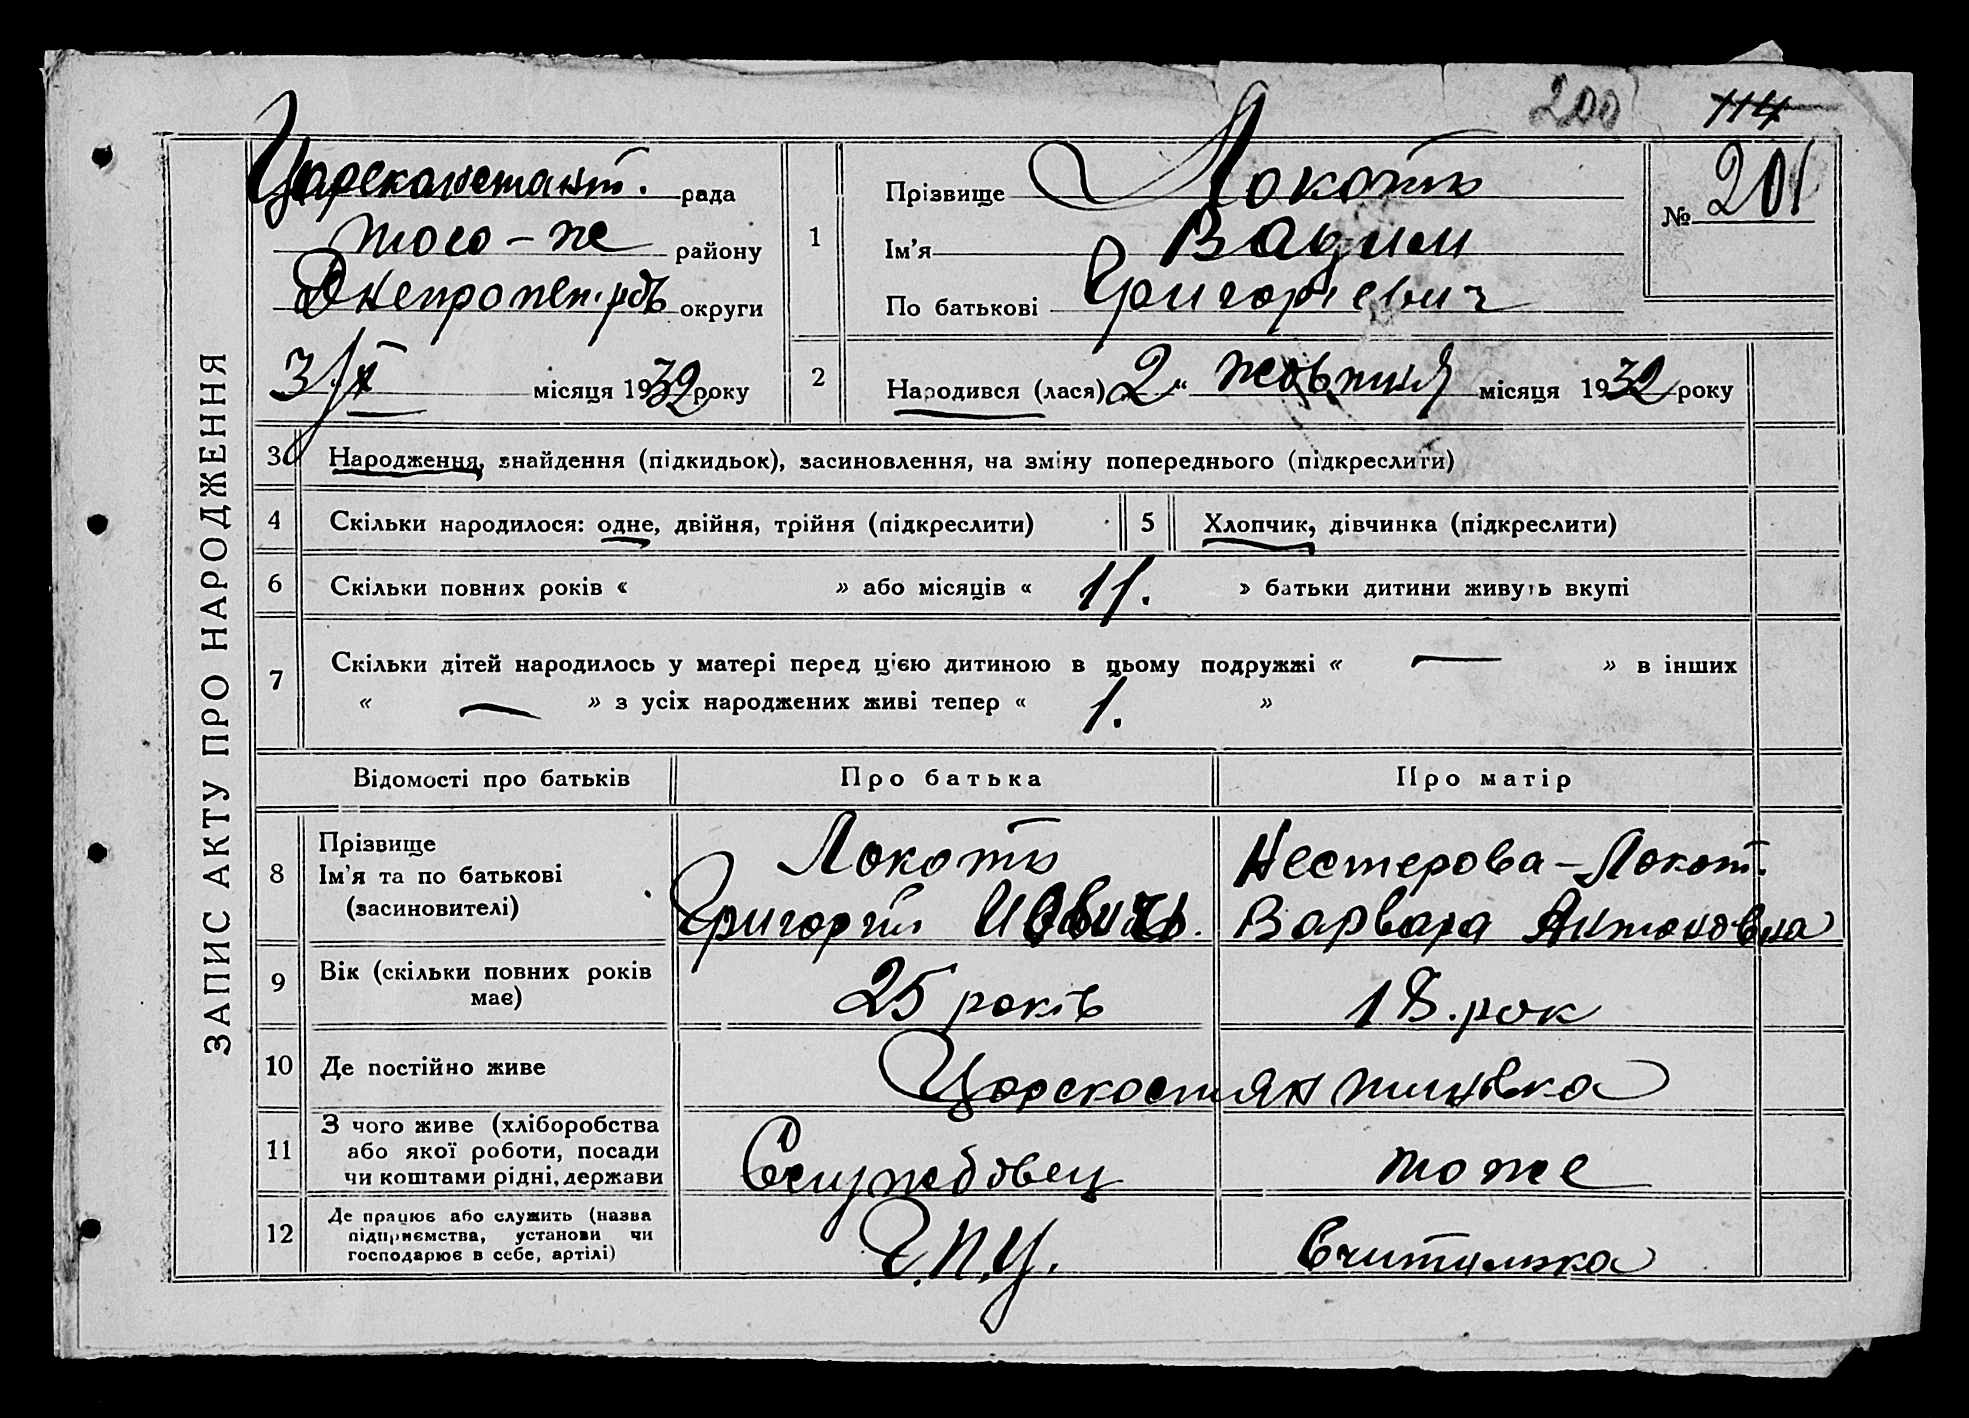 200 114
ЗАПИС АКТУ ПРО НАРОДЖЕННЯ
Царсконстант. рада
того-же району
округи
3/X місяця 1932 року
1
Прізвище Локоть
Ім'я Вадим
По батькові Григоріевич
№ 201
2
Народився (лася) 2 " жовтня місяця 1932 року
3 Народження, знайдення (підкидьок), засиновлення, на зміну попереднього (підкреслити)
4 Скільки народилося: одне, двійня, трійня (підкреслити)
5 Хлопчик, дівчинка (підкреслити)
6 Скільки повних років « » або місяців « 11. » батьки дитини живуть вкупі
7 Скільки дітей народилось у матері перед ц'єю дитиною в цьому подружжі « — » в інших
« — » з усіх народжених живі тепер « 1. »
Відомості про батьків Про батька Про матір
8 Прізвище
Ім'я та по батькові
(засиновителі)
Локоть
Григорій
Нестерова-Локот.
Варвара Антоновна
9 Вік (скільки повних років
має)
25 років 18. рок
10 Де постійно живе Царскостянтиновка
11 З чого живе (хліборобства
або якої роботи, посади
чи коштами рідні, держави
Службовец тоже
12 Де працює або служить (назва
підприємства, установи чи
господарює в себе, артілі)
Г.П.У. Вчителька